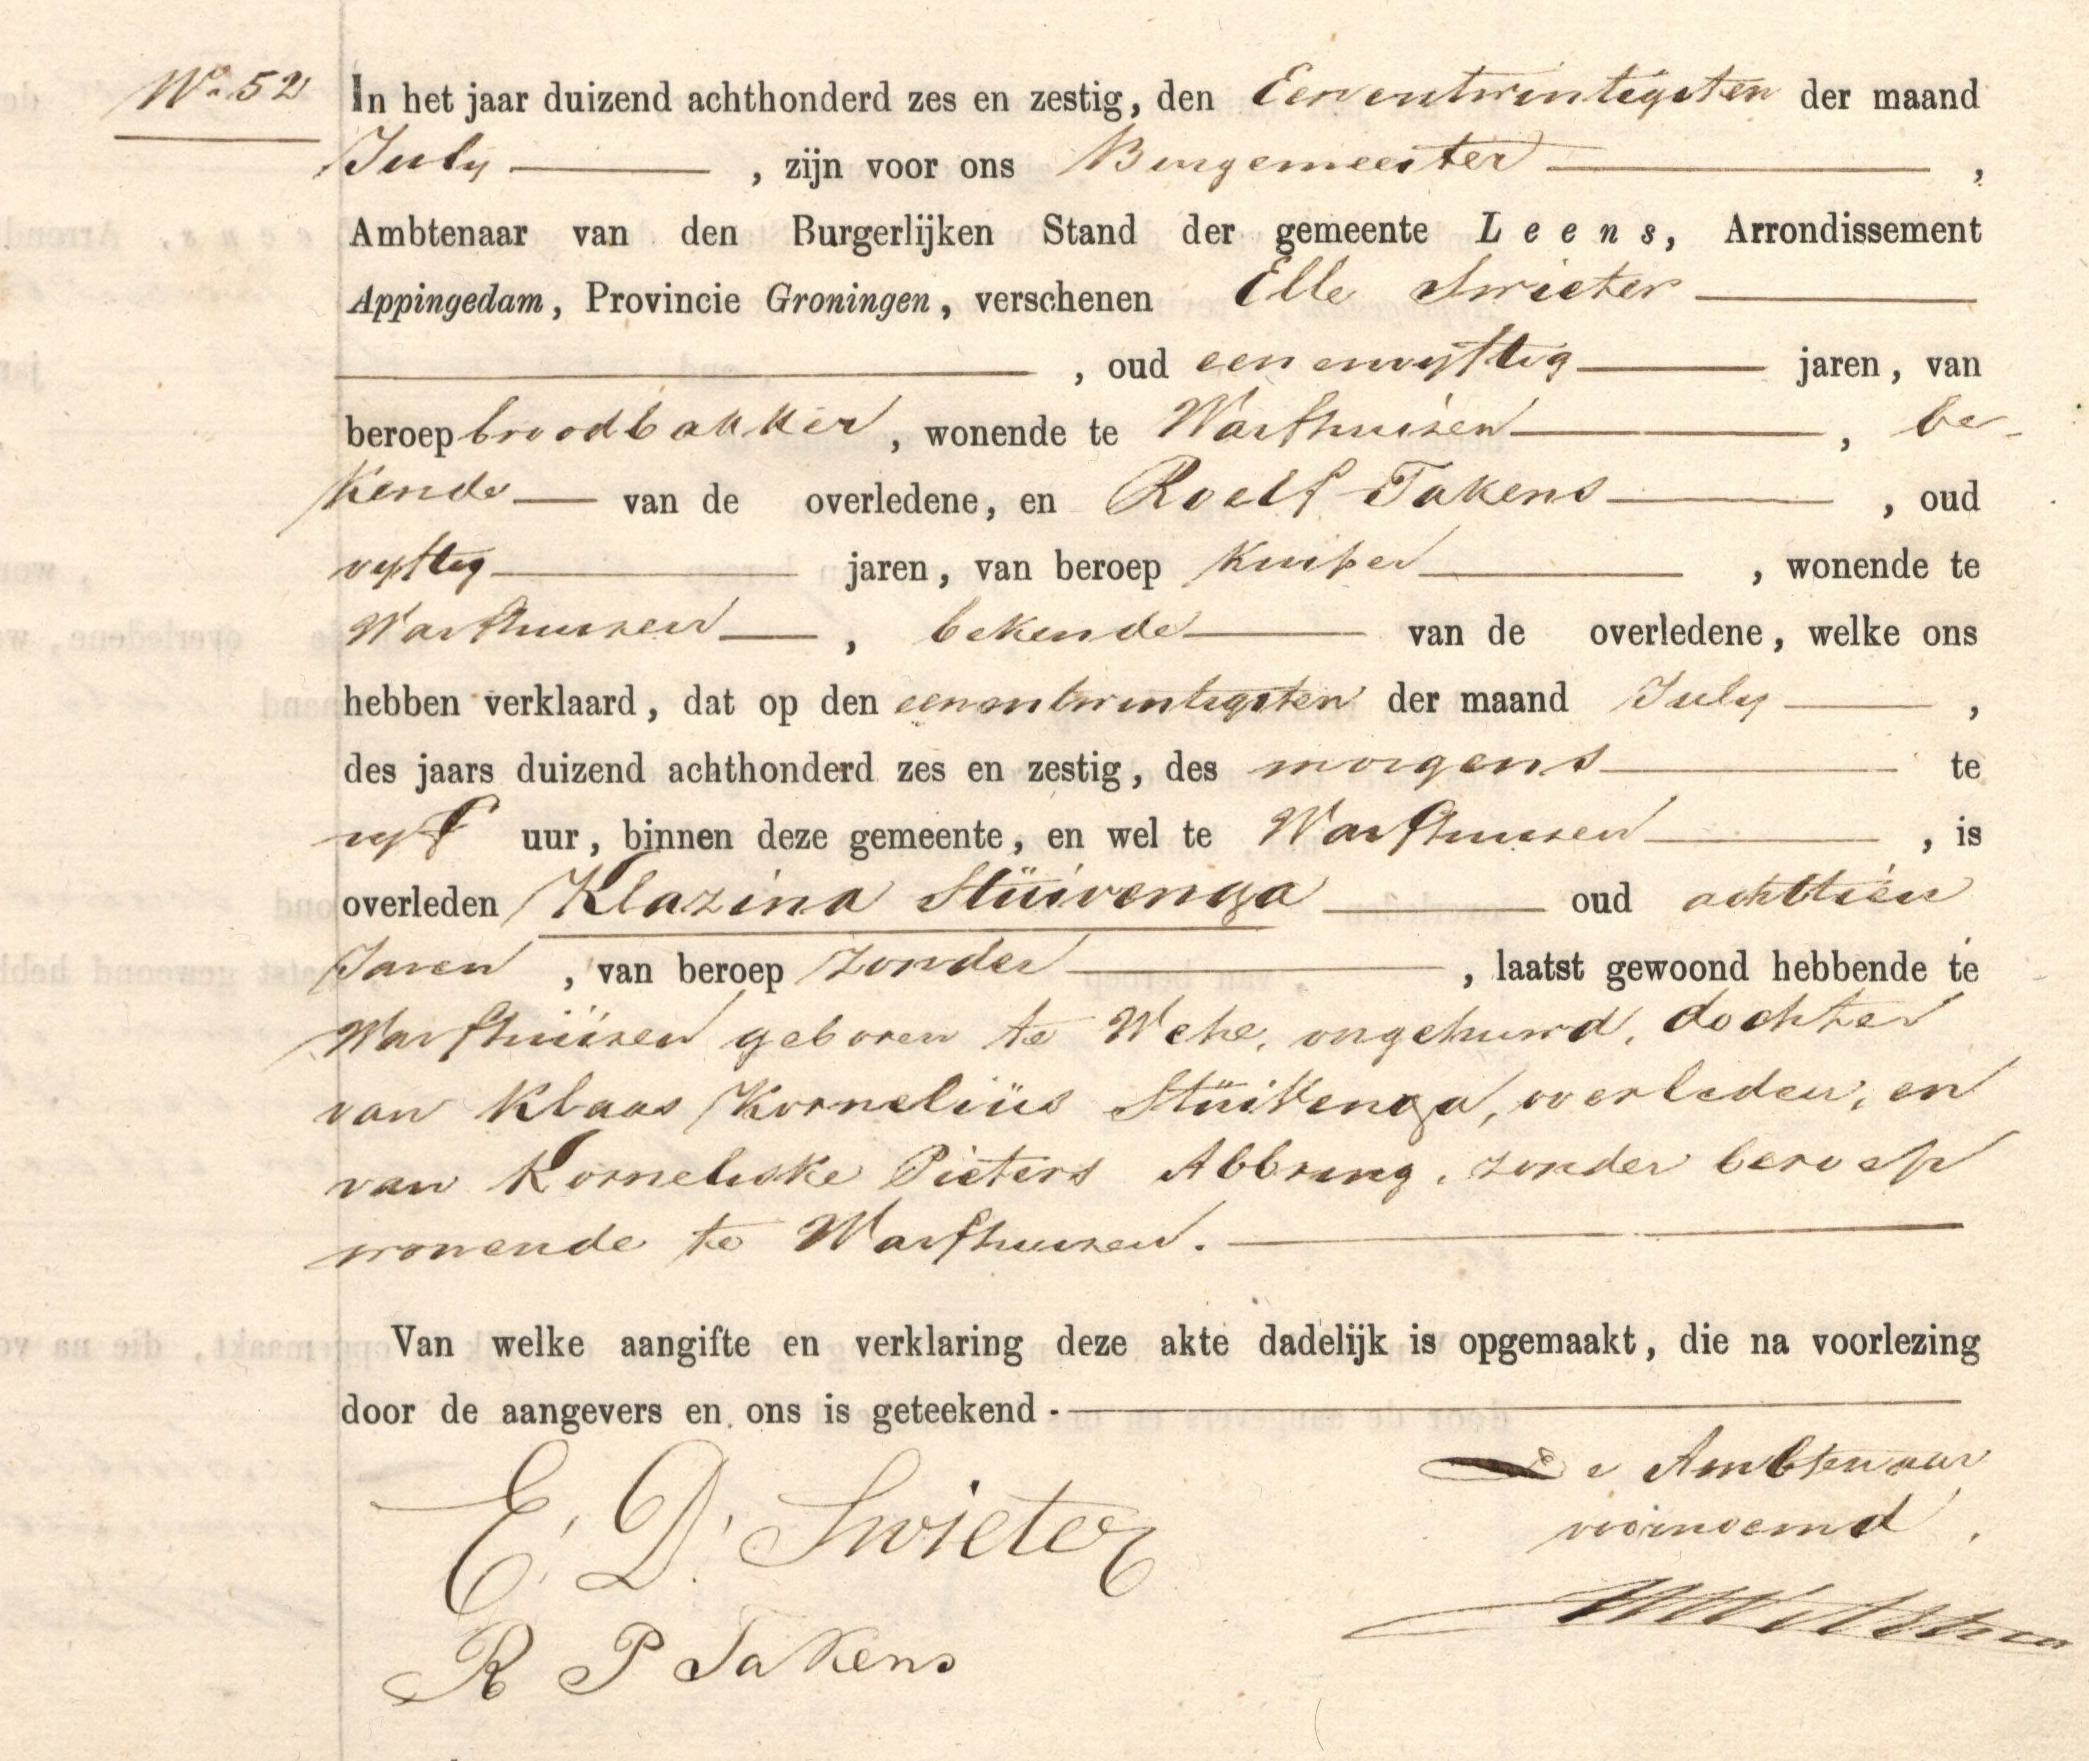 No. 52
In het jaar duizend achthonderd zes en zestig, den Eenentwintigsten der maand
July , zijn voor ons Burgemeester ,
Ambtenaar van den Burgerlijken Stand der gemeente Leens, Arrondissement
Appingedam, Provincie Groningen, verschenen Elle Swieter
, oud een envyftig jaren, van
beroep broodbakker, wonende te Warfhuisen , be-
kende van de overledene, en Roelf Takens , oud
vyftig jaren, van beroep Kuiper , wonende te
Warfhuisen , bekende van de overledene, welke ons
hebben verklaard, dat op den eenentwintigsten der maand July ,
des jaars duizend achthonderd zes en zestig, des morgens te
vyf uur, binnen deze gemeente, en wel te Warfhuisen , is
overleden Klazina Stüivenga oud achttien
Jaren , van beroep zonder , laatst gewoond hebbende te
Warfhüisen geboren te Wehe, ongehuwd, dochter
van Klaas Kornelius Stüivenga, overleden, en
van Korneliske Pieters Abbring, zonder beroep
wonende te Warfhuisen.
Van welke aangifte en verklaring deze akte dadelijk is opgemaakt, die na voorlezing
door de aangevers en ons is geteekend.
De Ambtenaar
voornoemd,
E. D. Swieter
R P Takens